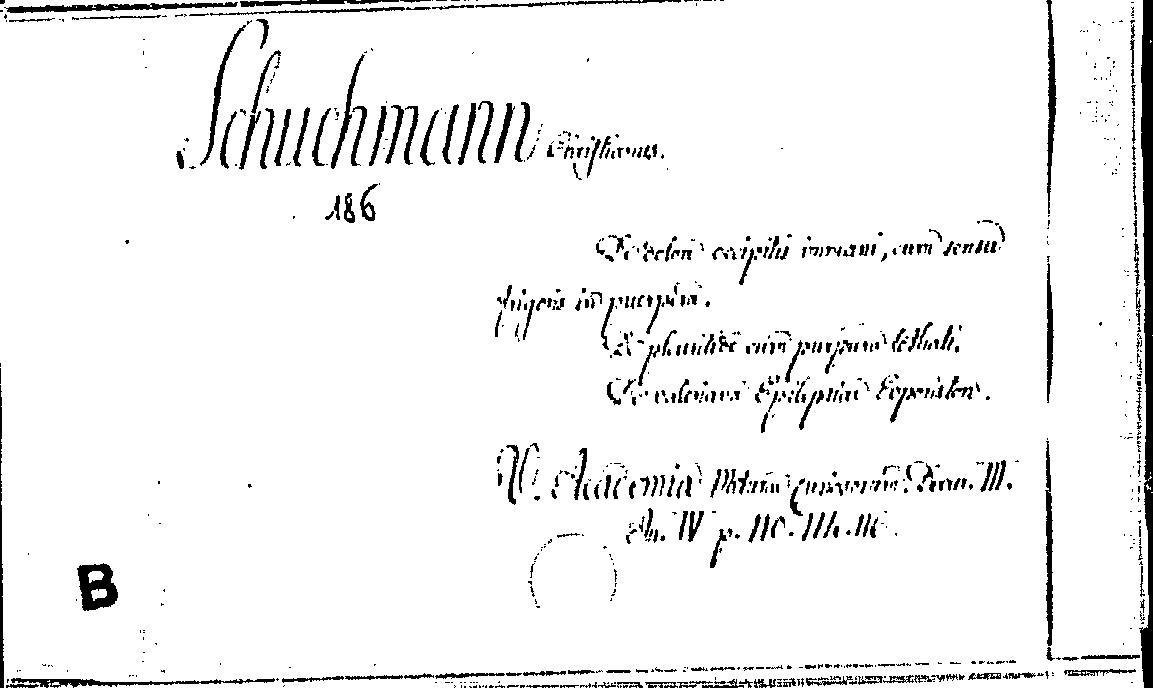 Schuchmann Christianus.
186
De dolore occipitis immani, cum sensu
frigoris in puerpera.
De pleuritide cum purpura lethali.
De valeriana Epilepsiae
V. Academia Naturae curiosorum. Decur. III.
An. IV p. 110. 114. 116.
B